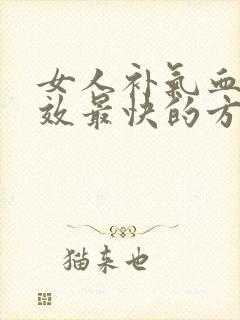 女人补气血
效最快的方
猫来也